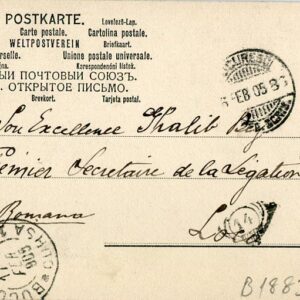 POSTKARTE. Levelező-Lap.
Carte postale. Cartolina postale.
WELTPOSTVEREIN Briefkaart.
erselle. Unione postale universale.
na. Korespondenční lístek.
ЫЙ ПОЧТОВЫЙ СОЮЗЪ.
ОТКРЫТОЕ ПИСЬМО.
Brevkort. Tarjeta postal.
FEB 05
Son Excellence Khalib Bey
Premier Secretaire de la Légation
Romana
Loco
44
905
B1885